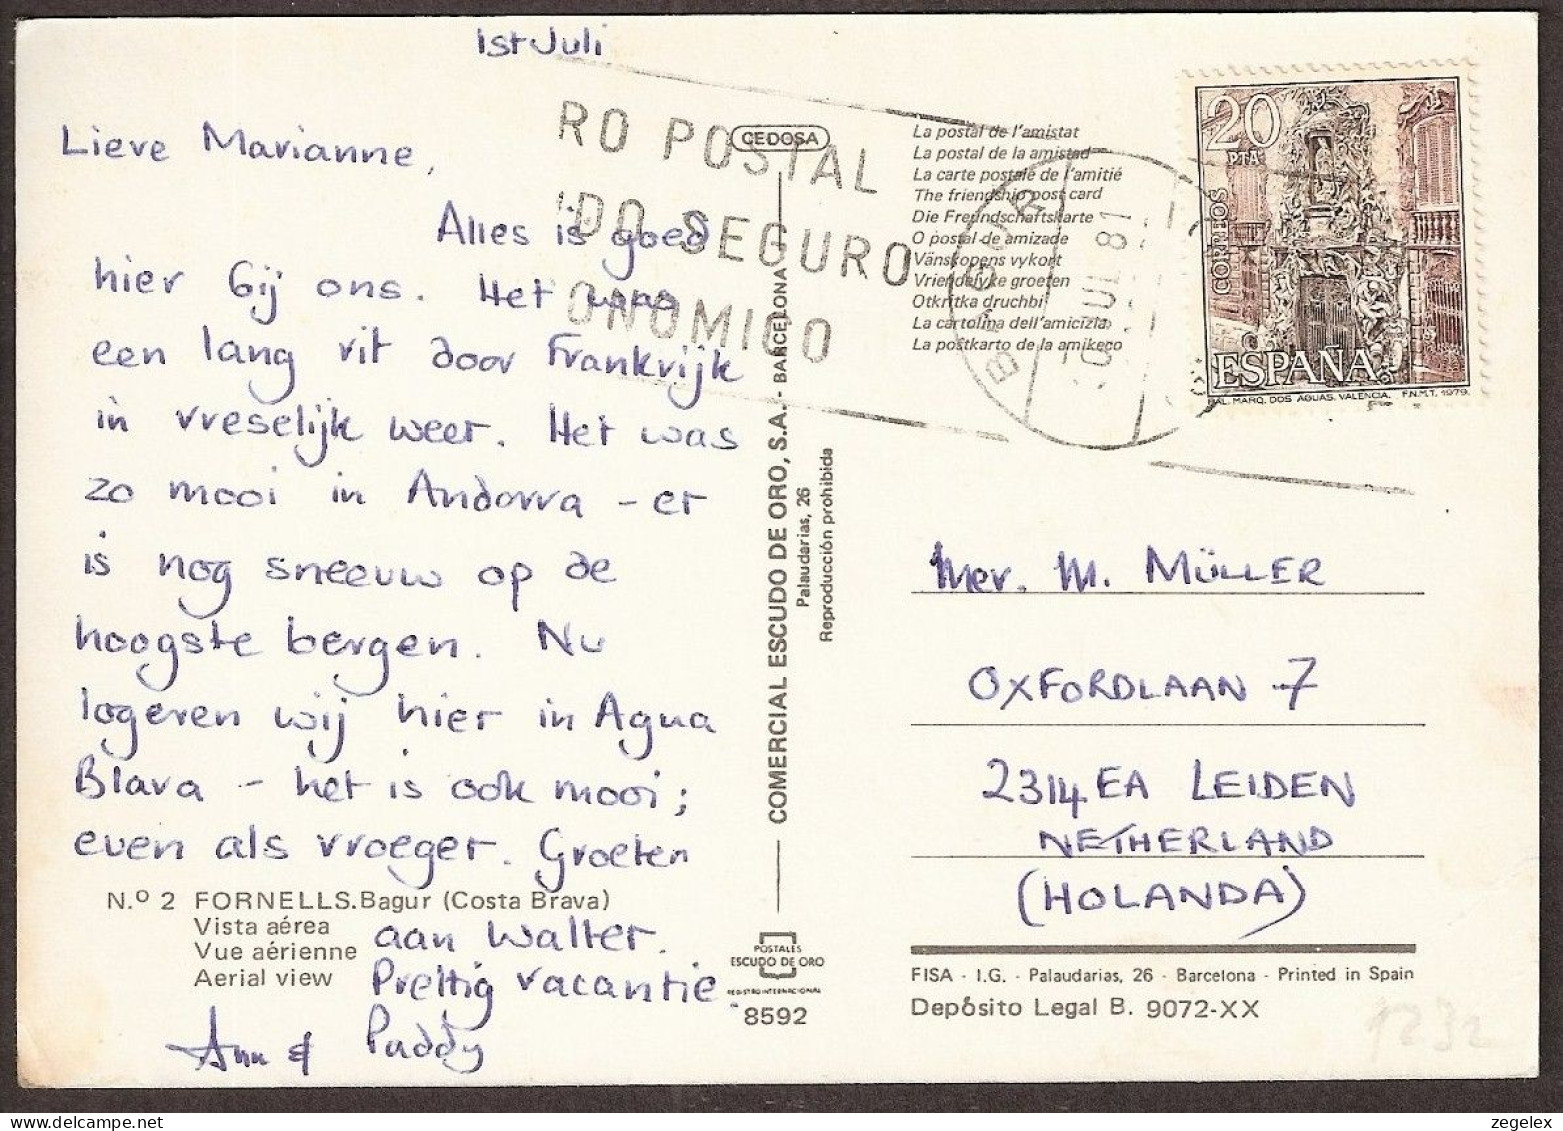 1st Juli
Lieve Marianne,
Alles is goed
hier bij ons. Het was
een lang rit door Frankrijk
in vreselijk weer. Het was
zo mooi in Andorra - er
is nog sneeuw op de
hoogste bergen. Nu
logeren wij hier in Agua
Blava - het is ook mooi;
even als vroeger. Groeten
aan Walter.
Prettig vacantie
Ann & Paddy
N.º 2 FORNELLS.Bagur (Costa Brava)
Vista aérea
Vue aérienne
Aerial view
RO POSTAL
DO SEGURO
ONOMICO
CEDOSA
COMERCIAL ESCUDO DE ORO, S.A. - BARCELONA
Palaudarias, 26
Reproducción prohibida
POSTALES
ESCUDO DE ORO
REGISTRO INTERNACIONAL
8592
La postal de l'amistat
La postal de la amistad
La carte postale de l'amitié
The friendship post card
Die Freundschaftskarte
O postal de amizade
Vänskapens vykort
Vriendelyke groeten
Otkritka druchbi
La cartolina dell'amicizia
La postkarto de la amikeco
BAGUR
JUL 81
20
PTA
CORREOS
ESPAÑA
PAL. MARQ. DOS AGUAS. VALENCIA. F.N.M.T. 1979
Mev. M. MÜLLER
OXFORDLAAN 7
2314 EA LEIDEN
NETHERLAND
(HOLANDA)
FISA - I.G. - Palaudarias, 26 - Barcelona - Printed in Spain
Depósito Legal B. 9072-XX
1232
zegelex